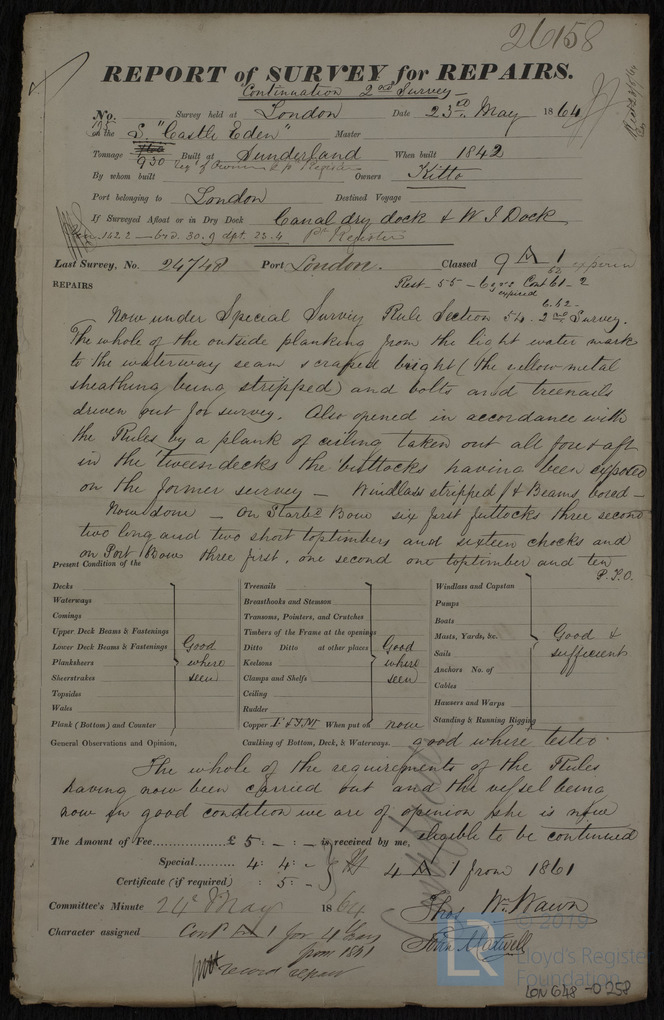 26158
REPORT of SURVEY for REPAIRS.
Continuation 2nd Survey
No. Survey held at London Date 23rd May 1864
on the S. "Castle Eden" Master
Tonnage 930 Built at Sunderland When built 1842
By whom built Owners Kitto
Port belonging to London Destined Voyage
If Surveyed Afloat or in Dry Dock Canal dry dock & W I Dock
142.2 brd. 30.9 dpt. 23.4 Pr Register
Last Survey, No. 24748 Port London. Classed 9 A 1
Rest - 55 - 6 yrs Cont 61 - 2
expired
6.62 -
REPAIRS
Now under Special Survey Rule Section 54. 2nd Survey.
The whole of the outside planking from the light water mark
to the waterway seam scraped bright (the yellow metal
sheathing being stripped) and bolts and treenails
driven out for survey. Also opened in accordance with
the Rules by a plank of ceiling taken out all fore & aft
in the 'tween decks the buttocks having been exposed
on the former survey - Windlass stripped & Beams bored -
Now done - On Starbd Bow six first futtocks three second
two long and two short toptimbers and sixteen chocks and
on Port Bow three first, one second one toptimber and ten
P.T.O.
Present Condition of the
Decks
Waterways
Comings
Upper Deck Beams & Fastenings
Lower Deck Beams & Fastenings
Planksheers
Sheerstrakes
Topsides
Wales
Plank (Bottom) and Counter
Good
where
seen
Treenails
Breasthooks and Stemson
Transoms, Pointers, and Crutches
Timbers of the Frame at the openings
Ditto Ditto at other places
Keelsons
Clamps and Shelfs
Ceiling
Rudder
Copper F & YM When put on now
Good
where
seen
Windlass and Capstan
Pumps
Boats
Masts, Yards, &c.
Sails
Anchors No. of
Cables
Hawsers and Warps
Standing & Running Rigging
Good &
sufficient
General Observations and Opinion, Caulking of Bottom, Deck, & Waterways. good where tested.
The whole of the requirements of the Rules
having now been carried out and the vessel being
now in good condition we are of opinion she is now
eligible to be continued
4 A 1 from 1861
The Amount of Fee £ 5 : - : - is received by me,
Special 4 : 4 : -
Certificate (if required) : 5 : -
Committee's Minute 24 May 1864
Character assigned Cont A 1 for 4 years
from 1861
record repair
Thos Wm Wawn
Martell
© 2019
LR
Lloyd's Register
Foundation
LON 648 - 0258